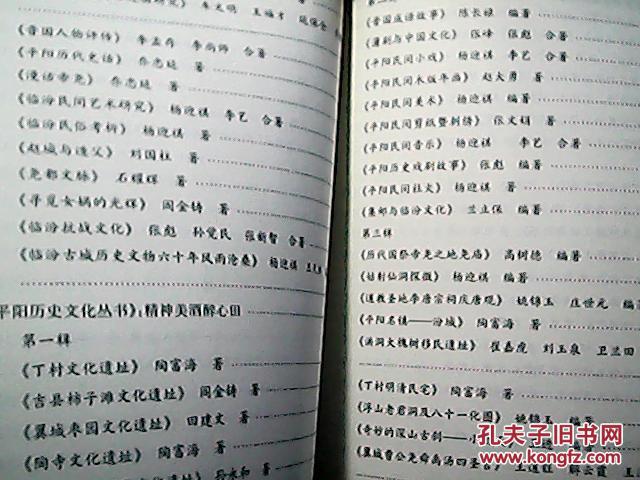 王福才
《晋国人物评传》 李孟存 李尚师 合著
《平阳历代史话》 乔忠延 著
《漫话帝尧》 乔忠延 著
《临汾民间艺术研究》 杨迎祺 李艺 合著
《临汾民俗考析》 杨迎祺 著
《赵城与造父》 刘国柱 著
《尧都文脉》 石耀辉 著
《寻觅女娲的光辉》 阎金铸 著
《临汾抗战文化》 张彪 孙党民 张朝智 合著
《临汾古城历史文物六十年风雨沧桑》 杨迎祺
平阳历史文化丛书》:精神美酒醉心田
第一辑
《丁村文化遗址》 陶富海 著
《吉县柿子滩文化遗址》 阎金铸 著
《翼城枣园文化遗址》 田建文 著
《陶寺文化遗址》 陶富海 著
孙永和 著
《晋国成语故事》 陈长禄 编著
《蒲剧与中国文化》 张峰 张彪 合著
《平阳民间小戏》 杨迎祺 李艺 编著
《平阳民间木版年画》 赵大勇 著
《平阳民间美术》 杨迎祺 编著
《平阳民间剪纸暨刺绣》 张文娟 著
《平阳民间音乐》 杨迎祺 李艺 编著
《平阳历史戏剧故事》 张彪 编著
《平阳民间社火》 杨迎祺 著
《集邮与临汾文化》 兰立保 编著
第三辑
《历代国祭帝尧之地尧庙》 高树德 编著
《姑射仙洞探微》 杨迎祺 编著
《道教圣地李唐宗祠庆唐观》 姚锦玉 庄世元 编
《平阳名镇——汾城》 陶富海 著
《洪洞大槐树移民遗址》 崔嘉虎 刘玉泉 卫兰田
《丁村明清民宅》 陶富海 著
《浮山老君洞及八十一化图》 姚锦玉 编著
《奇妙的深山古刹——小
《翼城曹公尧舜禹汤四圣宫》 王道钰 解云霞
孔夫子旧书网
www.kongfz.com